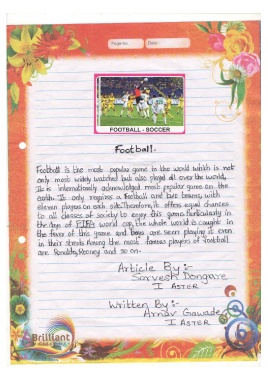 Page No.
Date
FOOTBALL - SOCCER
Football.
Football is the most popular game in the world which is not
only most widely watched but also played all over the world.
It is internationally acknowledged most popular game on the
earth. It only requires a football and two teams, with
eleven players on each site. Therefore, it offers equal chances
to all classes of society to enjoy this game. Particularly in
the days of FIFA world cup, the whole world is caught in
the fever of this game and boys are seen playing it even
in their streets. Among the most famous players of football
are Ronaldo, Rooney and so on.
Article By :-
Sarvesh Dongare
I ASTER
Written By :-
Arnav Gawade
I ASTER
Brilliant
6